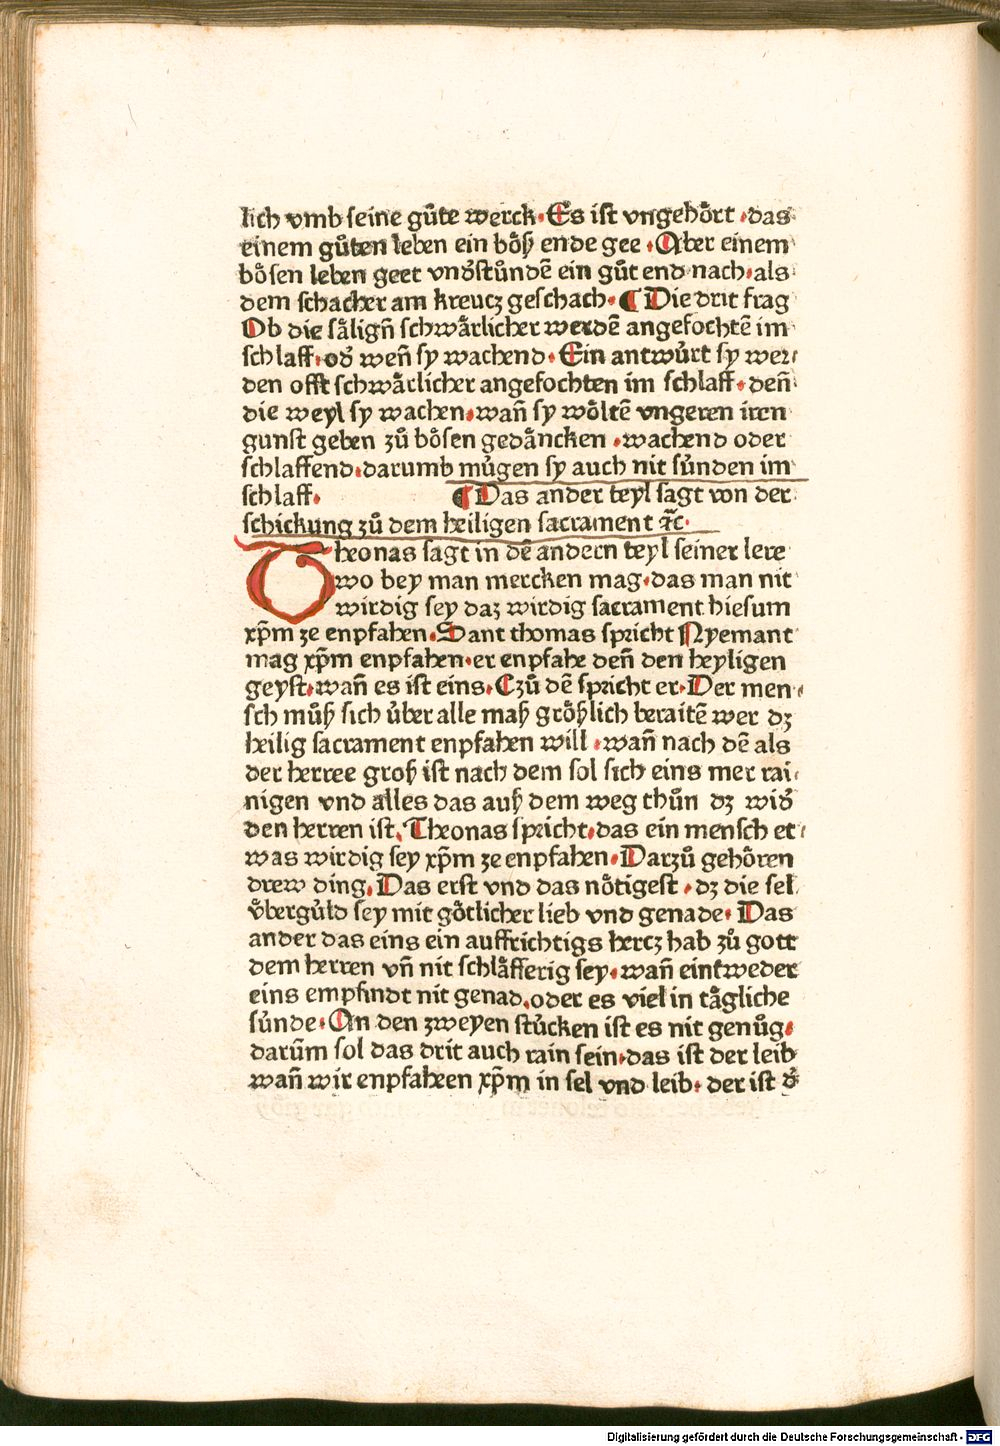 lich vmb seine gůte werck· Es ist vngehoͤrt ·das
einem gůten leben ein boͤß ende gee · Aber einem
boͤsen leben geet vnd̕stůndē ein gůt end nach·als
dem schacher am kreucz geschach· ¶ Die drit frag
Ob die saͤligñ schwaͤrlicher werdē angefochtē im
schlaff·od̕ weñ sy wachend· Ein antwůrt sy wer⸗
den offt schwaͤrlicher angefochten im schlaff· deñ
die weyl sy wachen·wañ sy woͤltē vngeren iren
gunst geben zů boͤsen gedaͤncken ·wachend oder
schlaffend·darumb můgen sy auch nit sůnden im
schlaff· ¶ Das ander teyl sagt von der
schickung zů dem heiligen sacrament ⁊c̄·
Theonas sagt in dē andern teyl seiner lere
wo bey man mercken mag·das man nit
wirdig sey daz wirdig sacrament hiesum
xp̄m ze enpfahen·Sant thomas spricht Nyemant
mag xp̄m enpfahen·er enpfahe deñ den heyligen
geyst·wañ es ist eins·Czů dē spricht er·Der men⸗
sch můß sich ůber alle maß groͤßlich beraitē wer dz
heilig sacrament enpfahen will ·wañ nach dē als
der herree groß ist nach dem sol sich eins mer rai⸗
nigen vnd alles das auß dem weg thůn dz wid̕
den herren ist·Theonas spricht·das ein mensch et⸗
was wirdig sey xp̄m ze enpfahen·Darzů gehoͤren
drew ding·Das erst vnd das noͤtigest ·dz die sel
v̊bergůld sey mit goͤtlicher lieb vnd genade· Das
ander das eins ein auffrichtigs hercz hab zů gott
dem herren vñ nit schlaͤfferig sey·wañ eintweder
eins empfindt nit genad·oder es viel in taͤgliche
sůnde·An den zweyen stůcken ist es nit genůg·
darům sol das drit auch rain sein·das ist der leib
wañ wir enpfahen xp̄m in sel vnd leib· der ist d̕
Digitalisierung gefördert durch die Deutsche Forschungsgemeinschaft - DFG